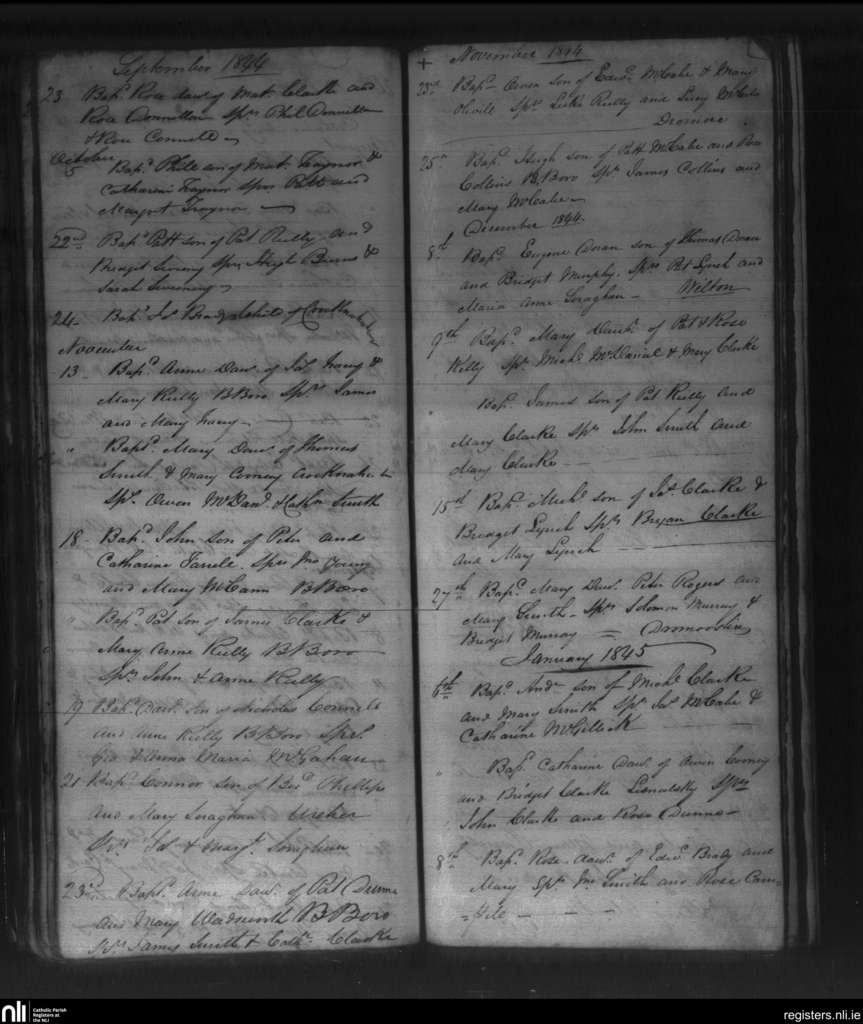 September 1844
23 Bapd Rose daur of Matt Clarke and
Rose Donnellan Sprs Phil Donnellan
& Rose Connell
October
5 Bapd Phill son of Matt Traynor &
Catharine Traynor Sprs Patt and
Margt Traynor
22nd Bapd Patt son of Pat Reilly and
Bridget Sweeny Sprs Hugh Burns &
Sarah Sweeney
24 Bapd Jas Brady child of
November
13 Bapd Anne Daur of Jas &
Mary Reilly BBoro Sprs James
and Mary
" Bapd Mary Daur of Thomas
Smith & Mary Cooney
Sprs Owen McDard & Cathn Smith
18 Bapd John son of Peter and
Catharine Sprs Jno Young
and Mary McCann BBoro
" Bapd Pat son of James Clarke &
Mary Anne Reilly BBoro
Sprs John & Anne Reilly
19 Bapd son of Nicholas Connell
and Anne Reilly BBoro Sprs
Geo & Anna Maria McGahan
21 Bapd Connor son of Phillips
and Mary Soraghan Urcher
Sprs Jas & Margt Soraghan
23rd Bapd Anne Daur of Pat Dunne
and Mary Wadsworth BBoro
Sprs James Smith & Cathn Clarke
+ November 1844
23rd Bapd Owen son of Edwd McCabe & Mary
Sprs Luke Reilly and Lucy McCabe
25th Bapd Hugh son of Patt McCabe and Rose
Collins BBoro Sprs James Collins and
Mary McCabe
December 1844
8th Bapd Eugene Doran son of Thomas Doran
and Bridget Murphy. Sprs Pat Lynch and
Maria Anne Soraghan Wilton
9th Bapd Mary Daur of Pat & Rose
Reilly Sprs Michl McDaniel & Mary Clarke
Bapd James son of Pat Reilly and
Mary Clarke Sprs John Smith and
Mary Clarke
15th Bapd Michl son of Jas Clarke &
Bridget Lynch Sprs Bryan Clarke
and Mary Lynch
27th Bapd Mary Daur Peter Rogers and
Mary Smith Sprs Solomon Murray &
Bridget Murray
January 1845
6th Bapd Andw son of Michl Clarke
and Mary Smith Sprs Jas McCabe &
Catharine McGillick
" Bapd Catharine Daur of Owen Cooney
and Bridget Clarke Sprs
John Clarke and Rose Dunne
8th Bapd Rose daur of Edwd Brady and
Mary Sprs Jno Smith and Rose Cam=
=
nli Catholic Parish
Registers at
the NLI
registers.nli.ie